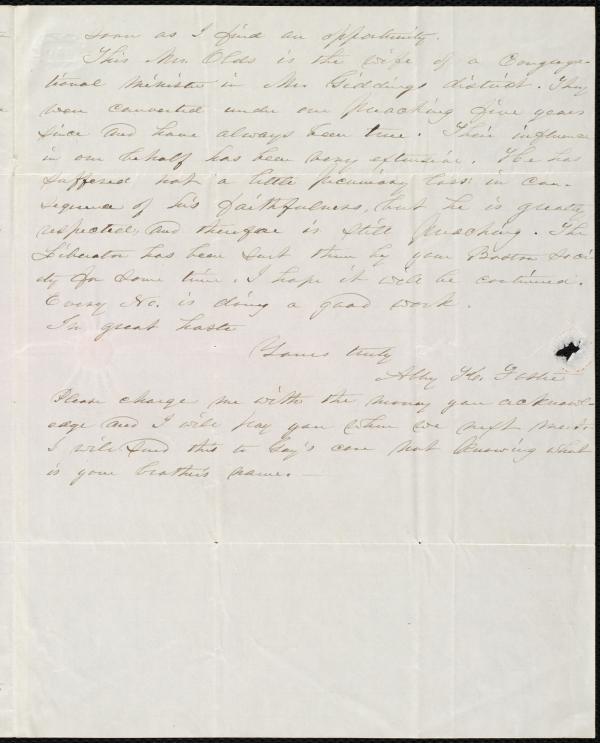 soon as I find an opportunity.
This Mrs. Olds is the wife of a Congrega-
tional minister in Mr. Giddings district. They
were converted under our preaching five years
since and have always been true. Their influence
in our behalf has been very extensive. He has
suffered not a little pecuniary loss in con-
sequence of his faithfulness, but he is greatly
respected, and therefore is still preaching. The
Liberator has been sent them by your Boston Soci-
ety for some time. I hope it will be continued.
Every No. is doing a good work.
In great haste
Yours truly
Abby K. Foster
Please charge me with the money you acknowl-
edge and I will pay you when we next meet.
I will send this to Gay's care not knowing what
is your brother's name.—